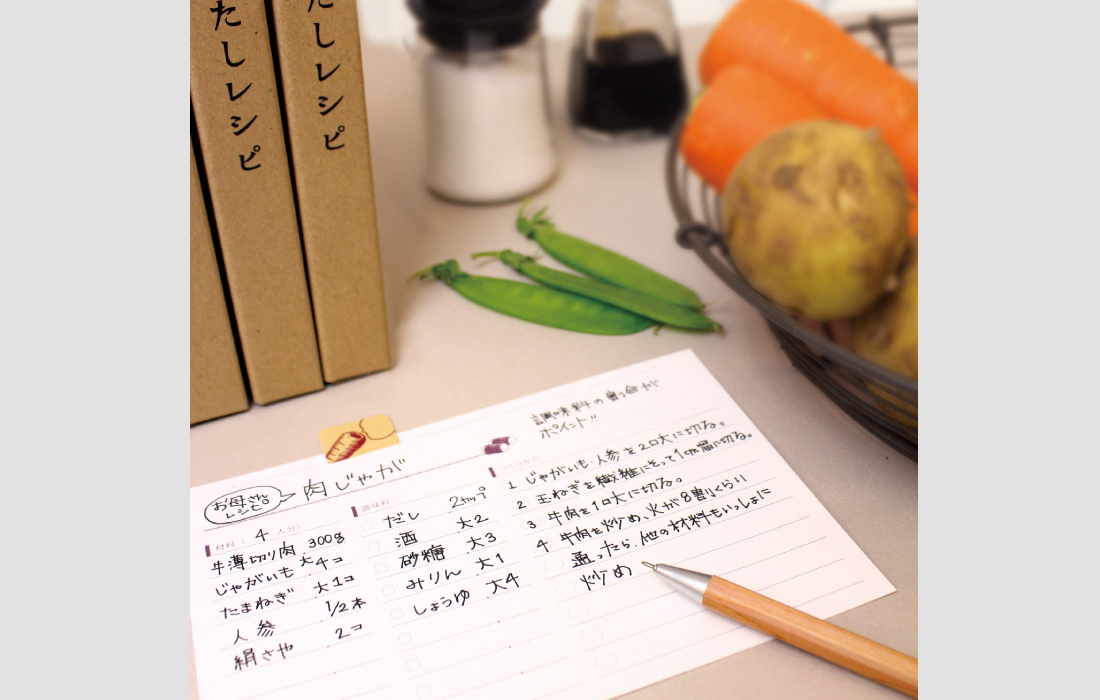 たしレシピ
たしレシピ
お母さん
レシピ
肉じゃが
調味料の割合が
ポイント!!
材料( 4 人分)
牛薄切り肉 300g
じゃがいも 大4コ
たまねぎ 大1コ
人参 1/2本
絹さや 2コ
調味料
だし 2カップ
酒 大2
砂糖 大3
みりん 大1
しょうゆ 大4
つくりかた
1 じゃがいも・人参を2口大に切る。
2 玉ねぎを繊維にそって1cm幅に切る。
3 牛肉を1口大に切る。
4 牛肉を炒め、火が8割りくらい
通ったら、他の材料もいっしょに
炒め